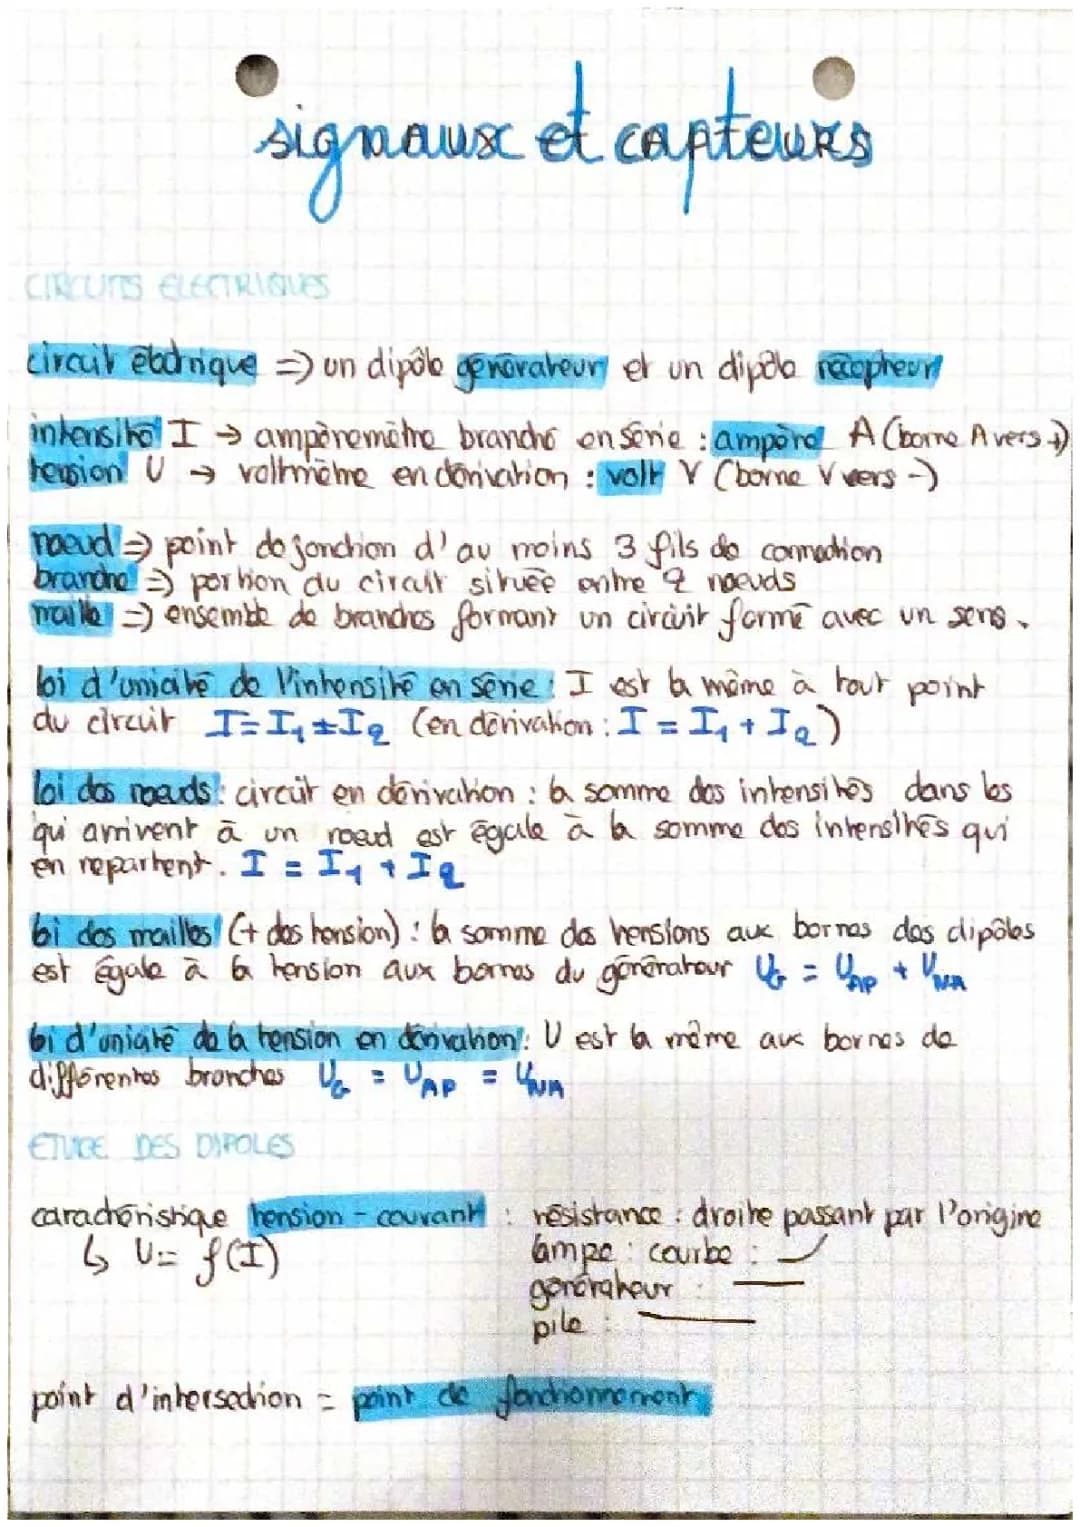 signaux et capteurs
CIRCUITS ELECTRIQUES
circuit électrique => un dipôle générateur et un dipôle récepteur
intensité I → ampèremètre branché en série : ampère A (borne A vers +)
tension U → voltmètre en dérivation : volt V (borne V vers -)
noeud => point de jonction d'au moins 3 fils de connection
branche => portion du circuit située entre 2 noeuds
maille => ensemble de branches formant un circuit fermé avec un sens.
loi d'unicité de l'intensité en série : I est la même à tout point
du circuit I = I₁ = I₂ (en dérivation : I = I₁ + I₂)
loi des noeuds : circuit en dérivation : la somme des intensités dans les
qui arrivent à un noeud est égale à la somme des intensités qui
en repartent. I = I₁ + I₂
loi des mailles (+ des tension) : la somme des tensions aux bornes des dipôles
est égale à la tension aux bornes du générateur U_G = U_AP + U_NA
loi d'unicité de la tension en dérivation : U est la même aux bornes de
différentes branches U_G = U_AP = U_NA
ETUDE DES DIPOLES
caractéristique tension - courant : résistance : droite passant par l'origine
↳ U = f(I) lampe : courbe :
générateur :
pile :
point d'intersection = point de fonctionnement